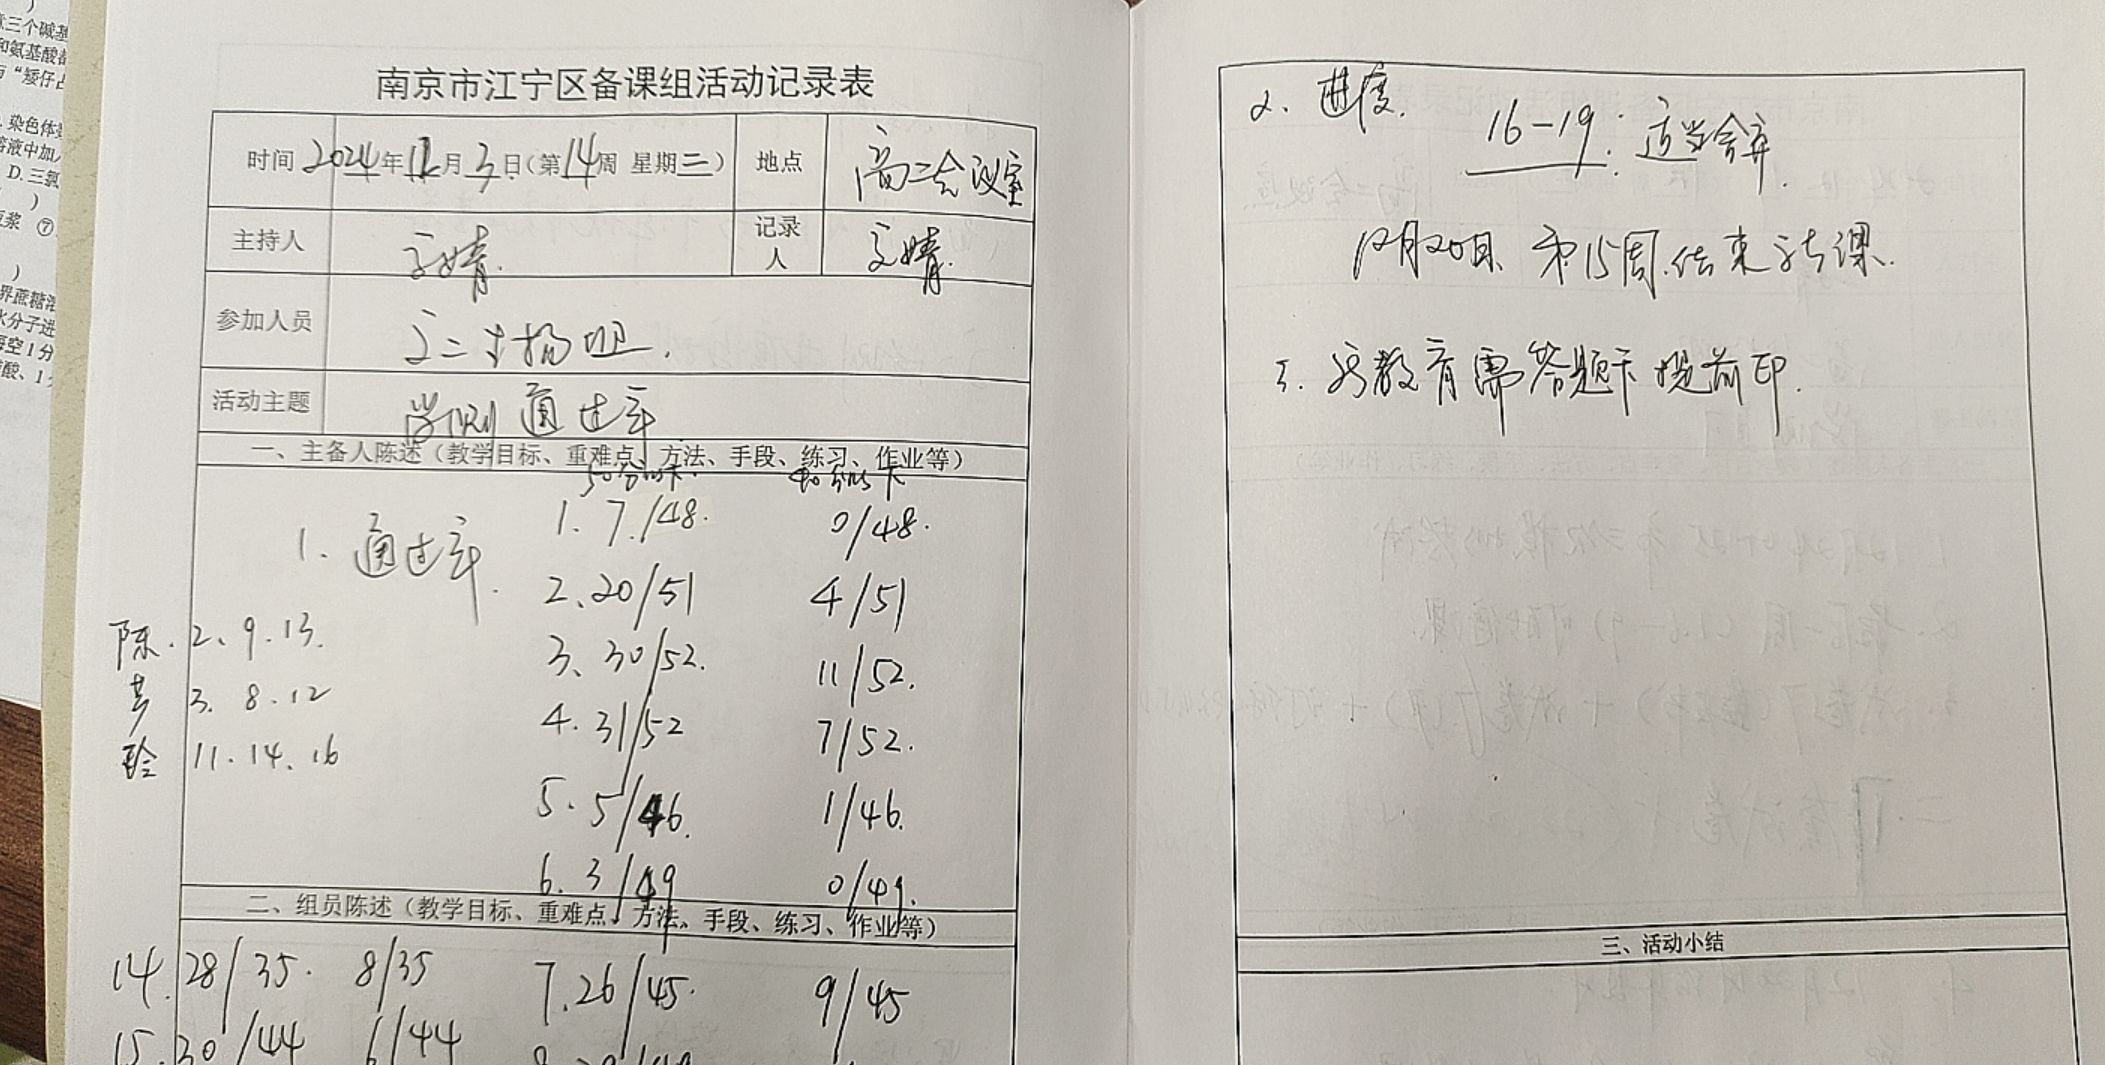 南京市江宁区备课组活动记录表
时间 2024年12月3日(第14周 星期二) 地点 高二会议室
主持人
记录人
参加人员
活动主题 学测通过率
一、主备人陈述（教学目标、重难点、方法、手段、练习、作业等）
50分以下 40分以下
1. 通过率.
1. 7/48. 0/48.
2、20/51 4/51
3、30/52. 11/52.
4. 31/52 7/52.
5. 5/46. 1/46.
6. 3/49 0/49.
陈. 2、9.13.
3. 8.12
11.14、16
二、组员陈述（教学目标、重难点、方法、手段、练习、作业等）
14. 28/35. 8/35
7. 26/45. 9/45
15. 30/44 6/44
2、进度.
16-19: 适当舍弃.
12月20日 第15周 结束新课.
需答题卡提前印.
三、活动小结
三个碱基
和氨基酸
“矮仔占
染色体
溶液中加
D.三氯
浆 ⑦
界蔗糖溶
水分子进
每空1分
酸、1